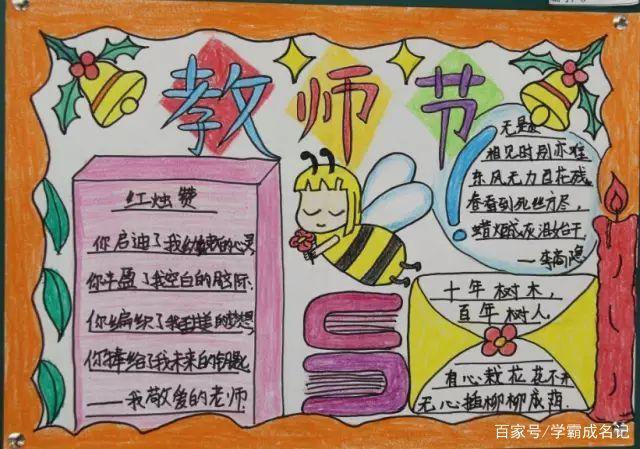 教师节
红烛赞
你启迪了我幼稚的心灵
你丰盈了我空白的脑际
你编织了我甜美的梦想
你捧给了我未来的钥匙
——我敬爱的老师.
无题
相见时别亦难
东风无力百花残
春蚕到死丝方尽,
蜡 成灰泪始干.
——李商隐
十年树木,
百年树人
有心栽花花不开
无心插柳柳成荫.
百家号/学霸成名记